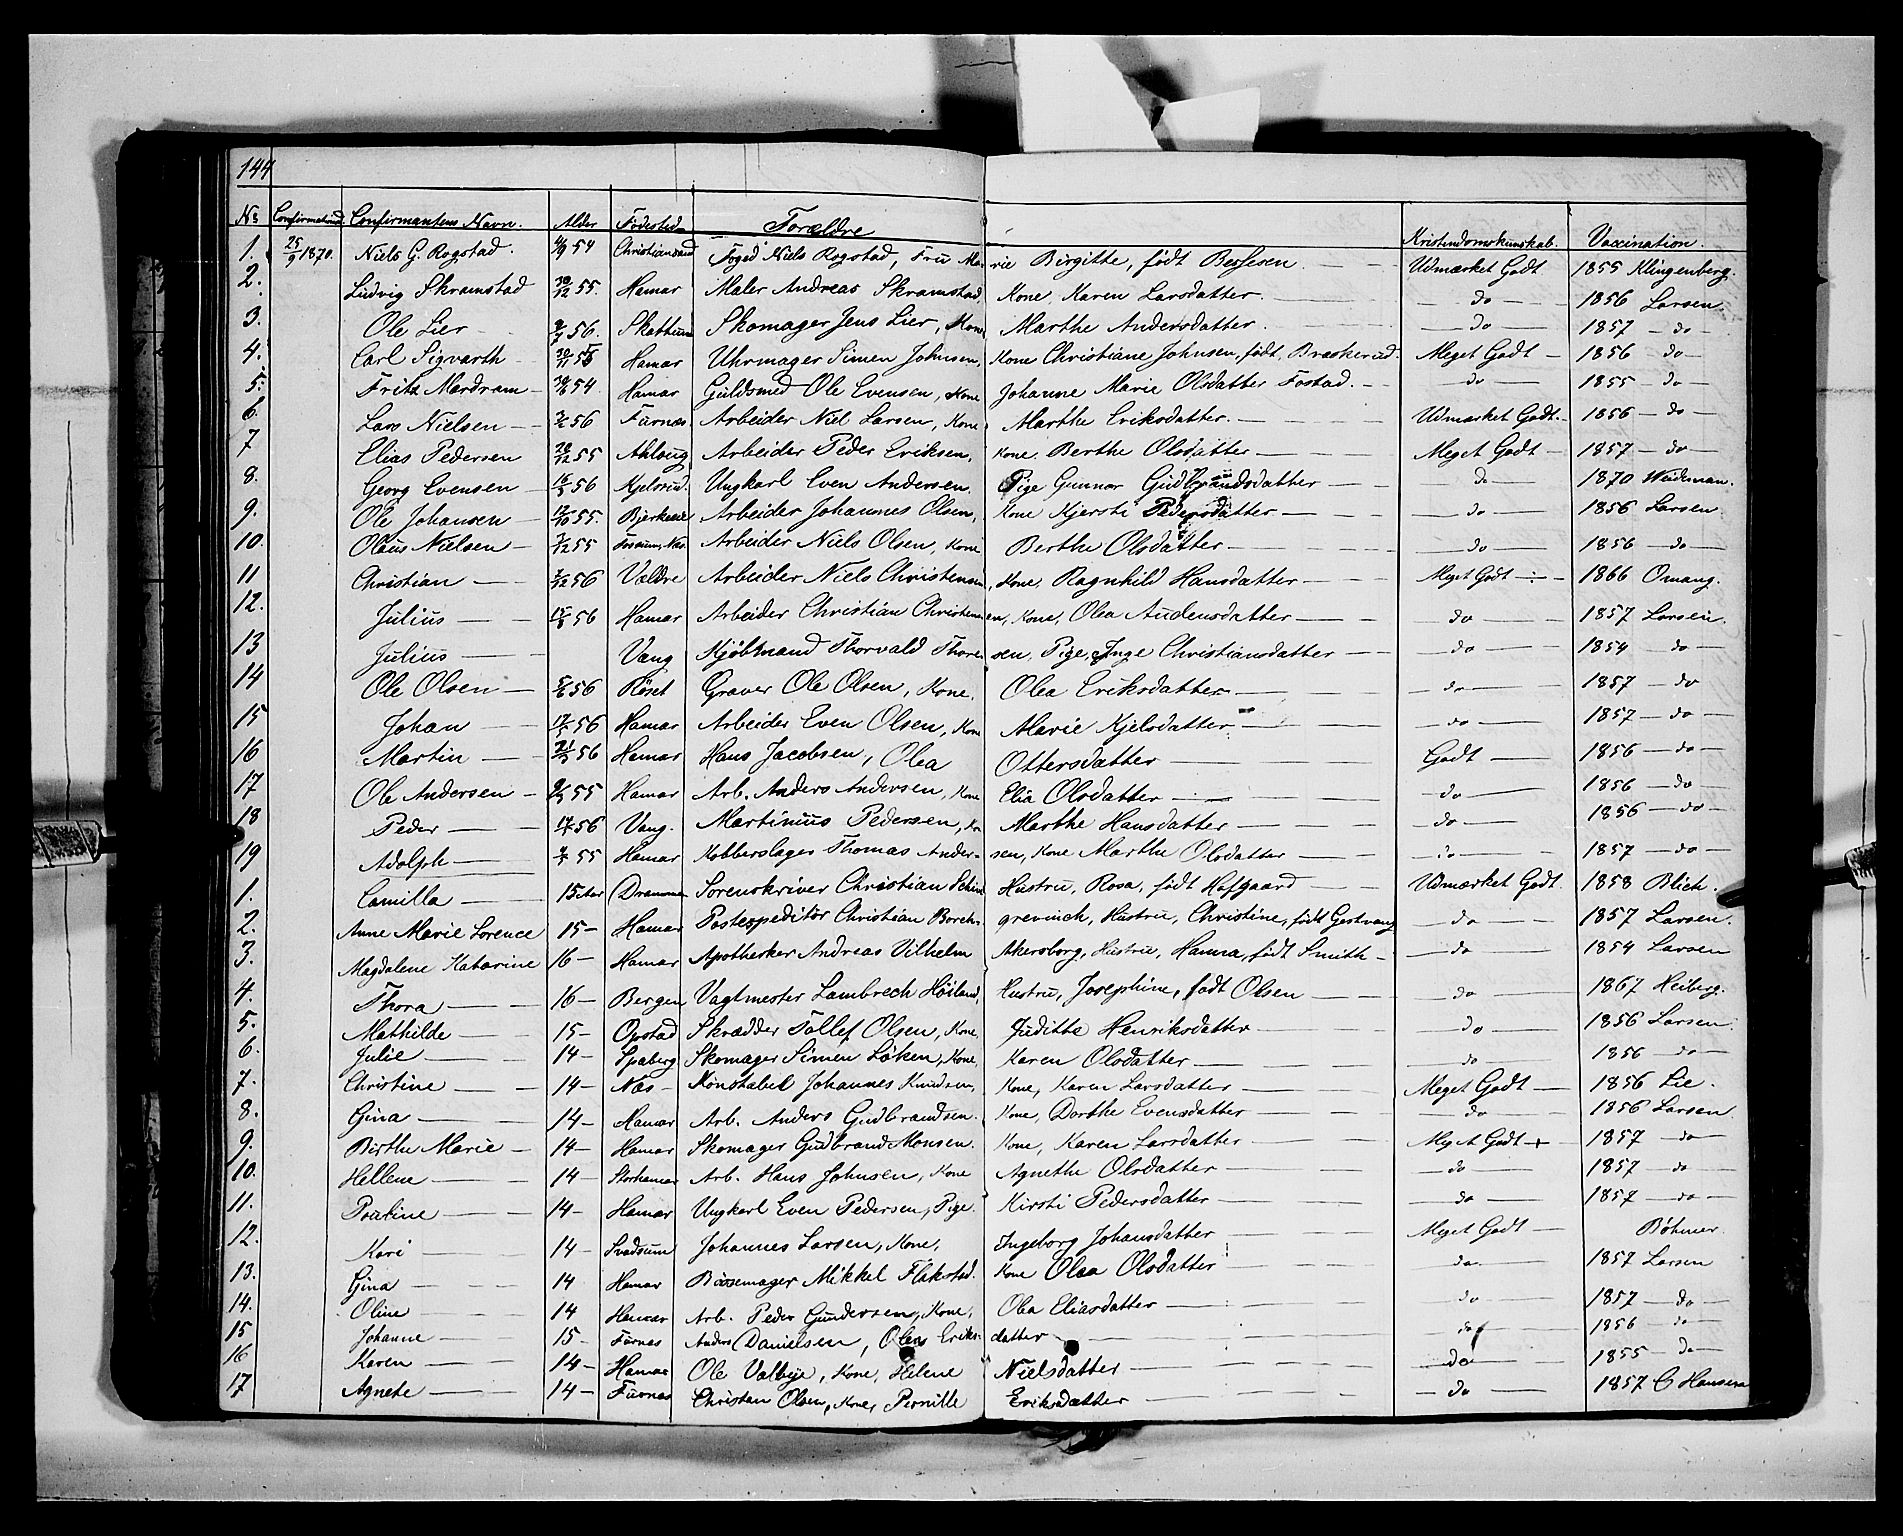 144
No Confirmationsd. Confirmantens Navn. Alder Fødested Forældre Kristendomskundskab. Vaccination.
1. 25/9 1870. Niels G. Rogstad. 54 Christianssand Foged Niels Rogstad, Fru Marie Birgitte, født Bessesen Udmærket Godt 1855 Klingenberg.
2. Ludvig Skramstad 30/12 55. Hamar Maler Andreas Skramstad, Kone Karen Larsdatter. do 1856 Larsen
3. Ole Lier 56. Skattum Skomager Jens Lier, Kone, Marthe Andersdatter. do 1857 do
4. Carl Sigvarth 55 Hamar Uhrmager Simen Johnsen, Kone Christiane Johnsen, født Braskerud. Meget Godt 1856 do
5. Fritz Mardram 54 Hamar Guldsmed Ole Evensen, Kone Johanne Marie Olsdatter Fostad. do 1855 do
6. Lars Nielsen 56 Furnæs Arbeider Niel Larsen, Kone Marthe Eriksdatter. Udmærket Godt. 1856 do
7 Elias Pedersen 28/12 55 Arbeider Peder Eriksen, Kone Berthe Olsdatter Meget Godt 1857 do
8. Georg Evensen 56 Kjelsrud. Ungkarl Even Andersen. Pige Gunnor Gudbrandsdatter do 1870 Weideman.
9. Ole Johansen 12/10 55. Arbeider Johannes Olsen, Kone Kjersti Pedersdatter do 1856 Larsen
10. Olaus Nielsen 7/12 55 Næs. Arbeider Niels Olsen, Kone Berthe Olsdatter do 1856 do
11 Christian 56 Valdre Arbeider Niels Christensen, Kone, Ragnhild Hansdatter Meget Godt 1866 Omang.
12. Julius 56 Hamar Arbeider Christian Christensen, Kone, Olea Audensdatter do 1857 Larsen.
13 Julius Vang Kjøbmand Thorvald Thoresen, Pige, Inge Christiansdatter do 1854 do
14 Ole Olsen 56 Røset Graver Ole Olsen, Kone, Olea Eriksdatter do 1857 do
15 Johan 56 Hamar Arbeider Even Olsen, Kone Marie Kjelsdatter do 1857 do
16 Martin 56 Hamar Hans Jacobsen, Olea Ottersdatter Godt 1856 do
17 Ole Andersen 55 Hamar Arb. Anders Andersen, Kone Elia Olsdatter do 1856 do
18 Peder 56 Vang. Martinius Pedersen, Ko Marthe Hansdatter do 1856 do
19 Adolph 55 Hamar Kobberslager Thomas Andersen, Kone Marthe Olsdatter do 1857 do
1. Camilla 15 Aar Drammen Sorenskriver Christian Hustru, Rosa, født Hofgaard Udmærket Godt. 1858 Blich.
2. Anne Marie Lorence 15 Hamar Postexpeditør Christian Borchgrevinck, Hustru, Christine, født Gestvang do 1857 Larsen.
3. Magdalene Katarine 16 Hamar Apotheker Andreas Vilhelm Akersborg, Hustru, Hanna, født Smith do 1854 Larsen
4. Thora 16 Bergen Vagtmester Lambrech Høiland, Hustru, Josephine, født Olsen do 1867 Heiberg.
5. Mathilde 15 Opstad Skrædder Tollef Olsen, Kone. Juditte Henriksdatter do 1856 Larsen
6. Julie 14 Spaberg Skomager Simen Løken, Kone, Karen Olsdatter do 1856 do
7. Christine 14 Næs Konstabel Johannes Knudsen, Kone, Karen Larsdatter Meget Godt 1856 Lie.
8. Gina 14 Hamar Arb. Anders Gudbrandsen. Kone, Dorthe Evensdatter do 1856 Larsen
9. Birthe Marie 14 Hamar Skomager Gudbrand Monsen. Kone, Karen Larsdatter Meget Godt + 1857 do
10. Hellene 14 Storhamar Arb. Hans Johnsen, Kone Agnethe Olsdatter do 1857 do
11. Pauline 14 Hamar Ungkarl Even Pedersen, Pige. Kirsti Pedersdatter do 1857 do
12. Kari 14 Svadsum Johannes Larsen, Kone, Ingeborg Johansdatter Meget Godt Bøhmer.
13. Gina 14 Hamar Bøssemager Mikkel Flakstad. Kone Olea Olsdatter do. 1857 Larsen
14. Oline 14 Hamar Arb. Peder Gundersen, Kone, Olea Eliasdatter do 1857 do
15 Johanne 15 Furnæs Anders Danielsen, Olea Eriksdatter do 1856 do
16 Karen 14 Hamar Ole Valbye, Kone, Helene Nielsdatter do 1855 do
17 Agnete 14 Furnæs Christian Olsen, Kone, Pernille Eriksdatter do 1857 C Hansen